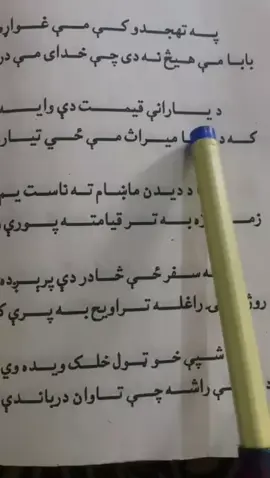 په تهجدو کې مې غواړه
بابا مې هیڅ نه دی چې خدای مې در
د یارانې قیمت دې وایه
که د ا میراث مې ځي تیار
د دیدن ماښام ته ناست یم
زه به تر قیامته پورې
ه سفر ځې څادر دې پرېږده
روژ راغله تراویح به پرې ک
شپې خو ټول خلک ویده وي
ې راشه چې تاوان درباندې